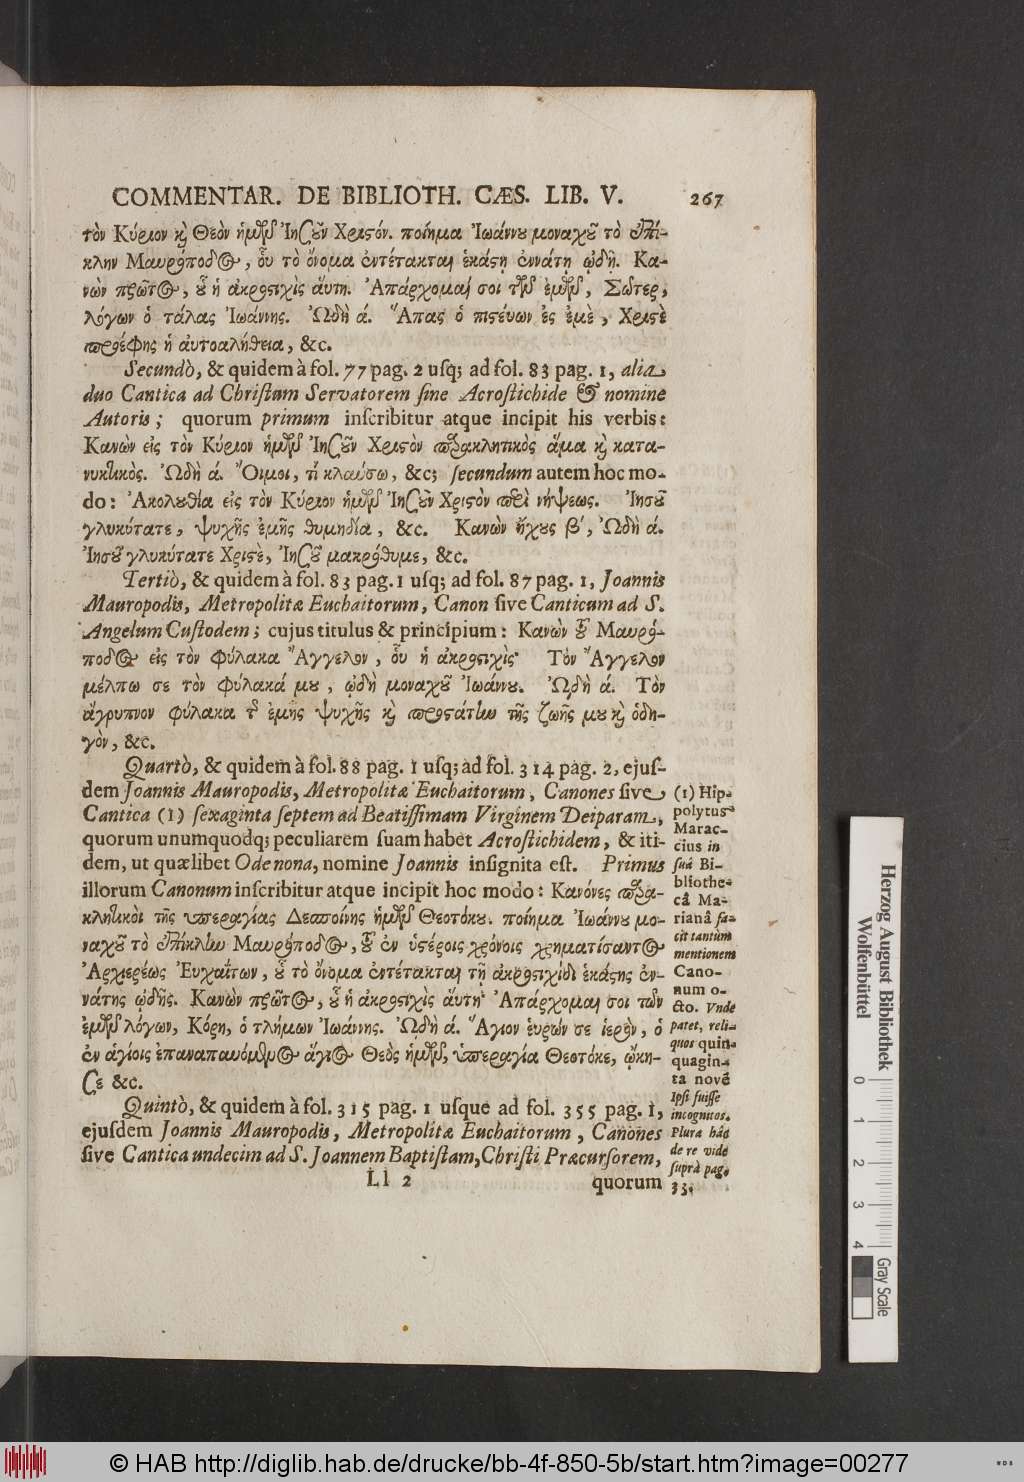 COMMENTAR. DE BIBLIOTH. CÆS. LIB. V. 267
τὸν Κύριον ϗ Θεὸν ἡμῶν Ἰησοῦν Χριστόν. ποίημα Ἰωάννου μοναχοῦ τὸ ἐπί-
κλην Μαυρόποδος, οὗ τὸ ὄνομα ἐντέτακται ἑκάστῃ ἐννάτῃ ᾠδῇ. Κα-
νὼν πρῶτος, οὗ ἡ ἀκροστιχὶς αὕτη. Ἀπάρχομαί σοι τῶν ἐμῶν, Σῶτερ,
λόγων ὁ τάλας Ἰωάννης. Ὠδὴ ά. Ἅπας ὁ πιστεύων ἐς ἐμὲ, Χριστὲ
προέφης ἡ αὐτοαλήθεια, &c.
Secundò, & quidem à fol. 77 pag. 2 usq; ad fol. 83 pag. 1, alia
duo Cantica ad Christum Servatorem sine Acrostichide & nomine
Autoris; quorum primum inscribitur atque incipit his verbis:
Κανὼν εἰς τὸν Κύριον ἡμῶν Ἰησοῦν Χριστὸν παρακλητικὸς ἅμα ϗ κατα-
νυκτικός. Ὠδὴ ά. Οἴμοι, τί κλαύσω, &c; secundum autem hoc mo-
do: Ἀκολουθία εἰς τὸν Κύριον ἡμῶν Ἰησοῦν Χριστὸν περὶ νήψεως. Ἰησοῦ
γλυκύτατε, ψυχῆς ἐμῆς θυμηδία, &c. Κανὼν ἤχους β', Ὠδὴ ά.
Ἰησοῦ γλυκύτατε Χριστὲ, Ἰησοῦ μακρόθυμε, &c.
Tertiò, & quidem à fol. 83 pag. 1 usq; ad fol. 87 pag. 1, Joannis
Mauropodis, Metropolitæ Euchaitorum, Canon sive Canticum ad S.
Angelum Custodem; cujus titulus & principium: Κανὼν τοῦ Μαυρό-
ποδος εἰς τὸν φύλακα Ἄγγελον, οὗ ἡ ἀκροστιχὶς· Τὸν Ἄγγελον
μέλπω σε τὸν φύλακά μου, ᾠδὴ μοναχοῦ Ἰωάννου. Ὠδὴ ά. Τὸν
ἄγρυπνον φύλακα τῆς ἐμῆς ψυχῆς ϗ προστάτην τῆς ζωῆς μου ϗ ὁδη-
γὸν, &c.
Quartò, & quidem à fol. 88 pag. 1 usq; ad fol. 314 pag. 2, ejus-
dem Joannis Mauropodis, Metropolitæ Euchaitorum, Canones sive
Cantica (1) sexaginta septem ad Beatissimam Virginem Deiparam,
quorum unumquodq; peculiarem suam habet Acrostichidem, & iti-
dem, ut quælibet Ode nona, nomine Joannis insignita est. Primus
illorum Canonum inscribitur atque incipit hoc modo: Κανόνες παρα-
κλητικοὶ τῆς ὑπεραγίας Δεσποίνης ἡμῶν Θεοτόκου. ποίημα Ἰωάννου μο-
ναχοῦ τὸ ἐπίκλην Μαυρόποδος, τοῦ ἐν ὑστέροις χρόνοις χρηματίσαντος
Ἀρχιερέως Εὐχαΐτων, οὗ τὸ ὄνομα ἐντέτακται τῇ ἀκροστιχίδι ἑκάστης ἐν-
νάτης ᾠδῆς. Κανὼν πρῶτος, οὗ ἡ ἀκροστιχὶς αὕτη· Ἀπάρχομαί σοι τῶν
ἐμῶν λόγων, Κόρη, ὁ τλήμων Ἰωάννης. Ὠδὴ ά. Ἅγιον εὑρών σε ἱερὸν, ὁ
ἐν ἁγίοις ἐπαναπαυόμενος ἅγιος Θεὸς ἡμῶν, ὑπεραγία Θεοτόκε, ᾤκη-
σε &c.
Quintò, & quidem à fol. 315 pag. 1 usque ad fol. 355 pag. 1,
ejusdem Joannis Mauropodis, Metropolitæ Euchaitorum, Canones
sive Cantica undecim ad S. Joannem Baptistam, Christi Præcursorem,
Ll 2 quorum
(1) Hip-
polytus
Marac-
cius in
suâ Bi-
bliothe-
câ Ma-
rianâ fa-
cit tantùm
mentionem
Cano-
num o-
cto. Unde
patet, reli-
quos quin-
quagin-
ta novē
Ipsi fuisse
incognitos.
Plura hâc
de re vide
suprà pag.
33.
Herzog August Bibliothek
Wolfenbüttel
0 1 2 3 4
Gray Scale
© HAB http://diglib.hab.de/drucke/bb-4f-850-5b/start.htm?image=00277